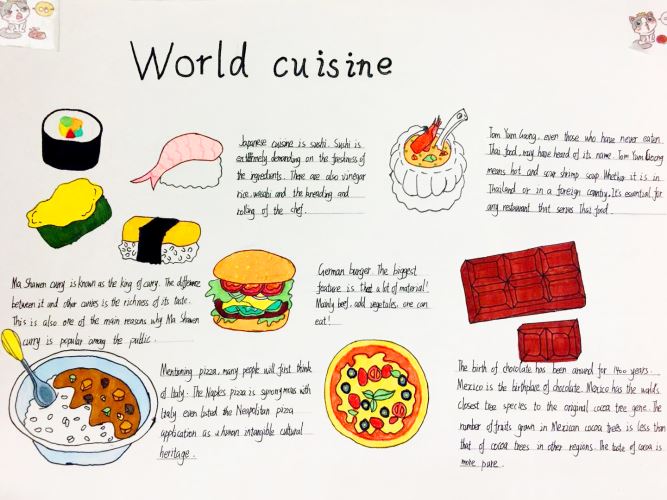 World cuisine
Japanese cuisine is sushi. Sushi is
extremely demanding on the freshness of
the ingredients. There are also vinegar
rice, wasabi and the kneading and
rolling of the chef.
Tom Yum Goong, even those who have never eaten
Thai food, may have heard of its name. Tom Yum Goong
means hot and sour shrimp soup. Whether it is in
Thailand or in a foreign country. It's essential for
any restaurant that serves Thai food.
Ma Shawen curry is known as the king of curry. The difference
between it and other curries is the richness of its taste.
This is also one of the main reasons why Ma Shawen
curry is popular among the public.
German burger. The biggest
feature is that a lot of material!
Mainly beef, add vegetables, one can
eat!
Mentioning pizza, many people will first think
of Italy. The Naples pizza is synonymous with
Italy even listed the Neapolitan pizza
application as a human intangible cultural
heritage.
The birth of chocolate has been around for 1400 years.
Mexico is the birthplace of chocolate. Mexico has the world's
closest tree species to the original cocoa tree gene. The
number of fruits grown in Mexican cocoa trees is less than
that of cocoa trees in other regions. The taste of cocoa is
more pure.